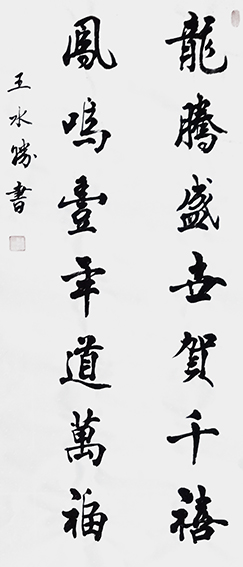 龍騰盛世賀千禧
鳳鳴壹年道萬福
王水勝書